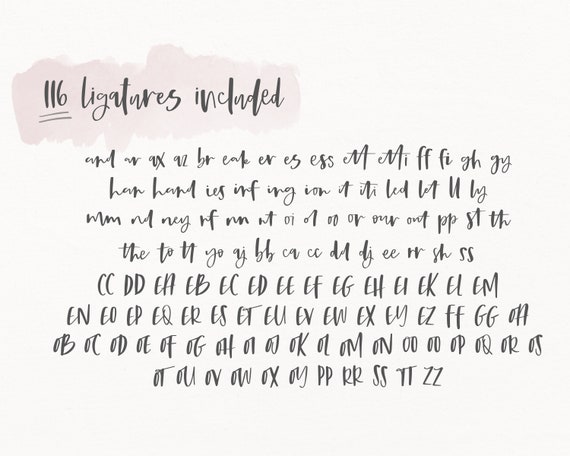 116 ligatures included
and ar ax az br eak er es ess ett etti ff fi gh gy
han hand ies inf ing ion it iti led let ll ly
mm nd ney nf nn nt oi ol oo or our out pp st th
the to tt yo aj bb ca cc dd dj ee rr sh ss
CC DD EA EB EC ED EE EF EG EH EI EK EL EM
EN EO EP EQ ER ES ET EU EV EW EX EY EZ FF GG OA
OB OC OD OE OF OG OH OI OJ OK OL OM ON OO OO OP OQ OR OS
OT OU OV OW OX OY PP RR SS TT ZZ